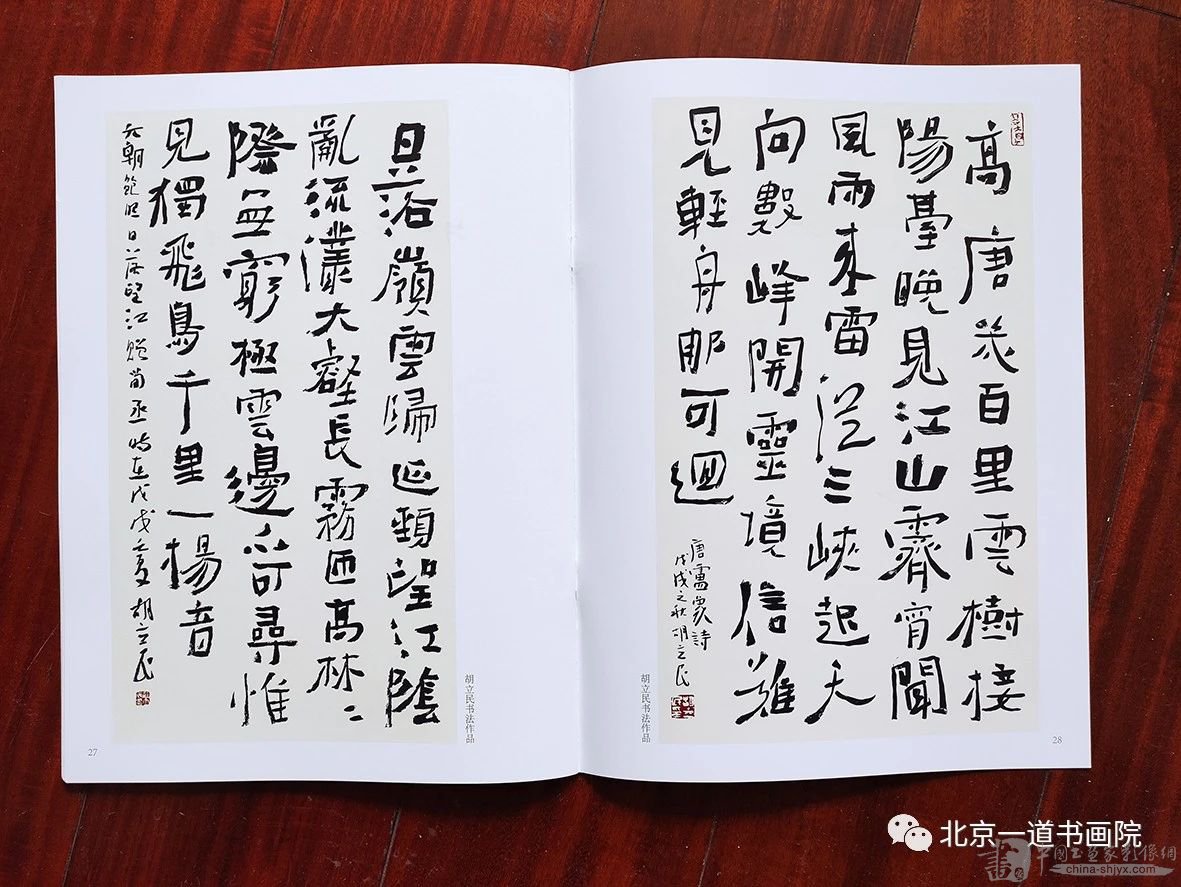 日落嶺雲歸延頸望江陰
亂流灇大壑長霧匝高林〻
際無窮極雲邊不可尋惟
見獨飛鳥千里一揚音
六朝範 日落望江贈 丞時在戊戌之夏胡立民
胡立民书法作品
27
高唐幾百里雲樹接
陽臺晚見江山霽宵聞
風雨来雷從三峽起天
向數峰開靈境信難
見輕舟那可迴
唐盧象詩
戊戌之秋胡立民
胡立民书法作品
28
北京一道书画院
中國书画家影像網
china-shjyx.com